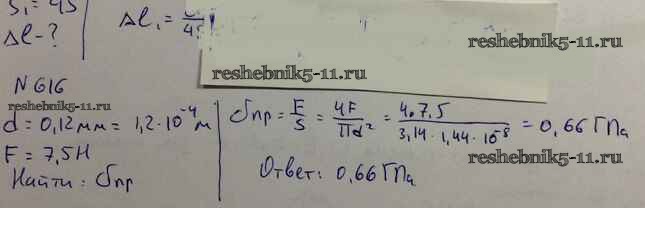 S₁ = 4S
Δl - ?
Δl₁ =
reshebnik5-11.ru
reshebnik5-11.ru
N 616
reshebnik5-11.ru
d = 0,12 мм = 1,2·10⁻⁴ м
F = 7,5 Н
Найти: σпр
σпр = F/S = 4F/Πd² = 4·7,5/3,14·1,44·10⁻⁸ = 0,66 ГПа
reshebnik5-11.ru
Ответ: 0,66 ГПа